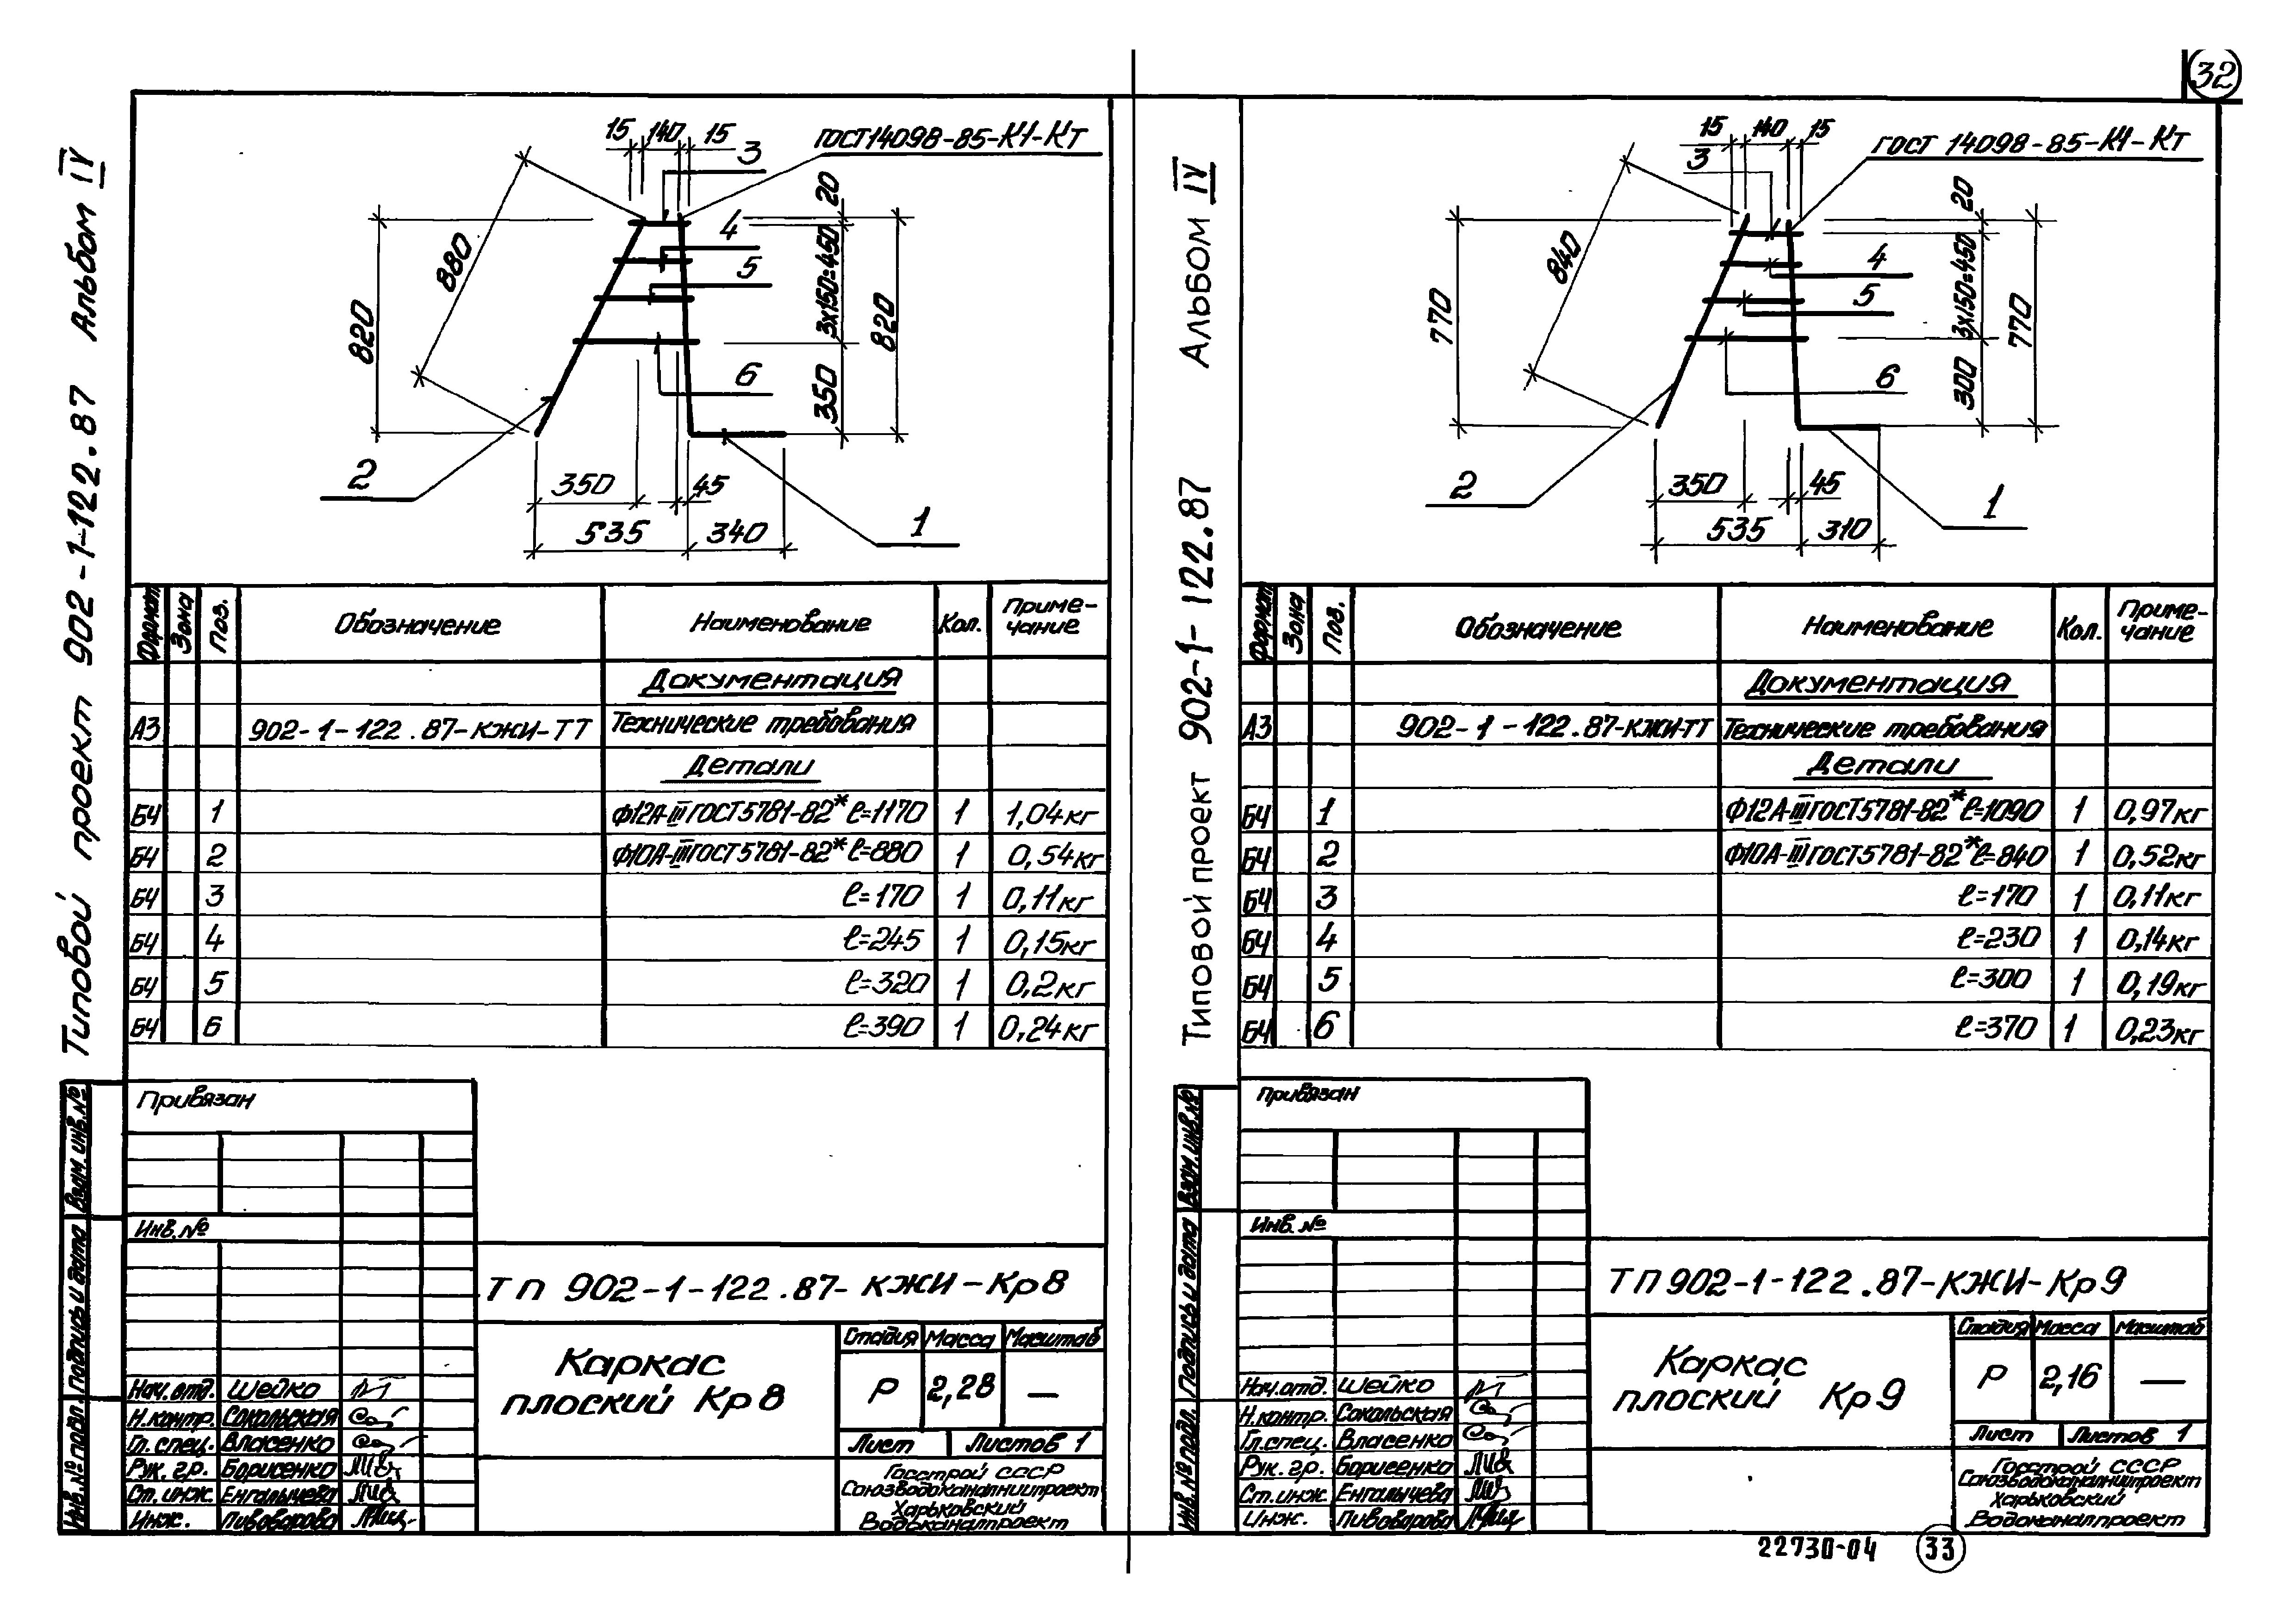 32
Типовой проект 902-1-122.87 Альбом IV
15 140 15
3
ГОСТ14098-85-К1-КТ
20
4
880
3х150=450
5
820
820
6
350
2
350
45
1
535
340
Формат Зона Поз. Обозначение Наименование Кол. Приме-
чание
Документация
А3 902-1-122.87-КЖИ-ТТ Технические требования
Детали
БЧ 1 Ф12А-III ГОСТ5781-82* ℓ=1170 1 1,04кг
БЧ 2 Ф10А-III ГОСТ5781-82* ℓ=880 1 0,54кг
БЧ 3 ℓ=170 1 0,11кг
БЧ 4 ℓ=245 1 0,15кг
БЧ 5 ℓ=320 1 0,2кг
БЧ 6 ℓ=390 1 0,24кг
Привязан
Инв.№
Взам.инв.№
Подпись и дата
Инв.№ подл.
ТП 902-1-122.87-КЖИ-Кр8
Каркас
плоский Кр8
Стадия Масса Масштаб
Р 2,28 —
Лист Листов 1
Нач.отд. Шейко
Н.контр. Сокальская
Гл.спец. Власенко
Рук.гр. Борисенко
Ст.инж. Енгалычева
Инж. Пивоварова
Госстрой СССР
Союзводоканалниипроект
Харьковский
Водоканалпроект
Типовой проект 902-1-122.87 Альбом IV
15 140 15
3
ГОСТ 14098-85-К1-КТ
20
4
840
3х150=450
5
770
770
6
300
2
350
45
1
535
310
Формат Зона Поз. Обозначение Наименование Кол. Приме-
чание
Документация
А3 902-1-122.87-КЖИ-ТТ Технические требования
Детали
БЧ 1 Ф12А-III ГОСТ5781-82* ℓ=1090 1 0,97кг
БЧ 2 Ф10А-III ГОСТ5781-82* ℓ=840 1 0,52кг
БЧ 3 ℓ=170 1 0,11кг
БЧ 4 ℓ=230 1 0,14кг
БЧ 5 ℓ=300 1 0,19кг
БЧ 6 ℓ=370 1 0,23кг
Привязан
Инв.№
Взам.инв.№
Подпись и дата
Инв.№ подл.
ТП 902-1-122.87-КЖИ-Кр9
Каркас
плоский Кр9
Стадия Масса Масштаб
Р 2,16 —
Лист Листов 1
Нач.отд. Шейко
Н.контр. Сокальская
Гл.спец. Власенко
Рук.гр. Борисенко
Ст.инж. Енгалычева
Инж. Пивоварова
Госстрой СССР
Союзводоканалниипроект
Харьковский
Водоканалпроект
22730-04 33